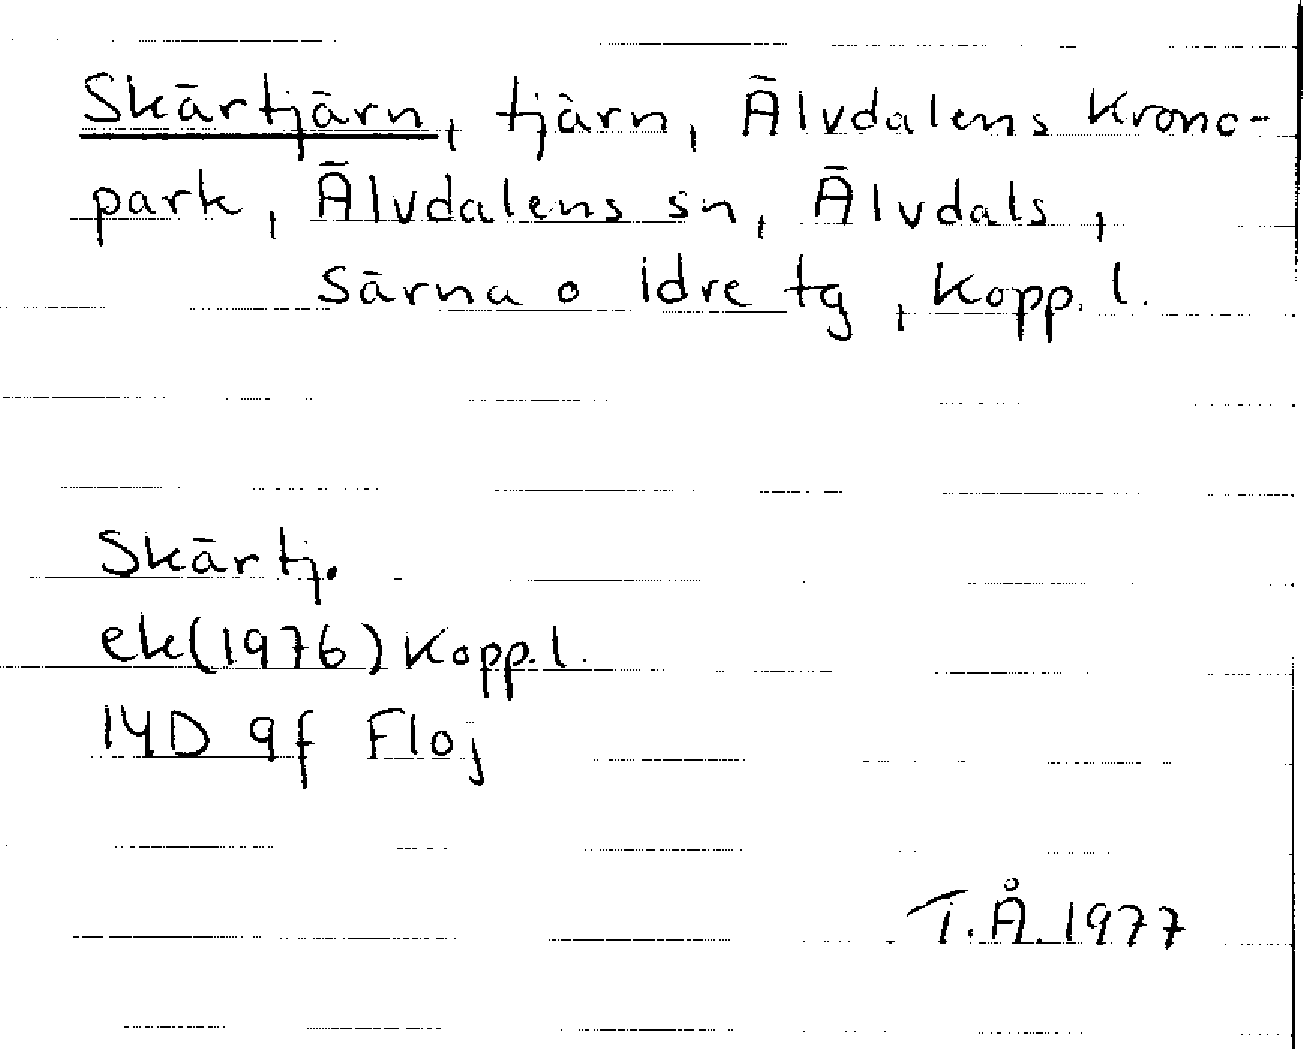 Skärtjärn, tjärn, Älvdalens krono-
park, Älvdalens sn, Älvdals,
Särna o Idre tg, Kopp. l.
Skärtj.
ek(1976) Kopp. l.
14D 9f Floj
T.Å. 1977